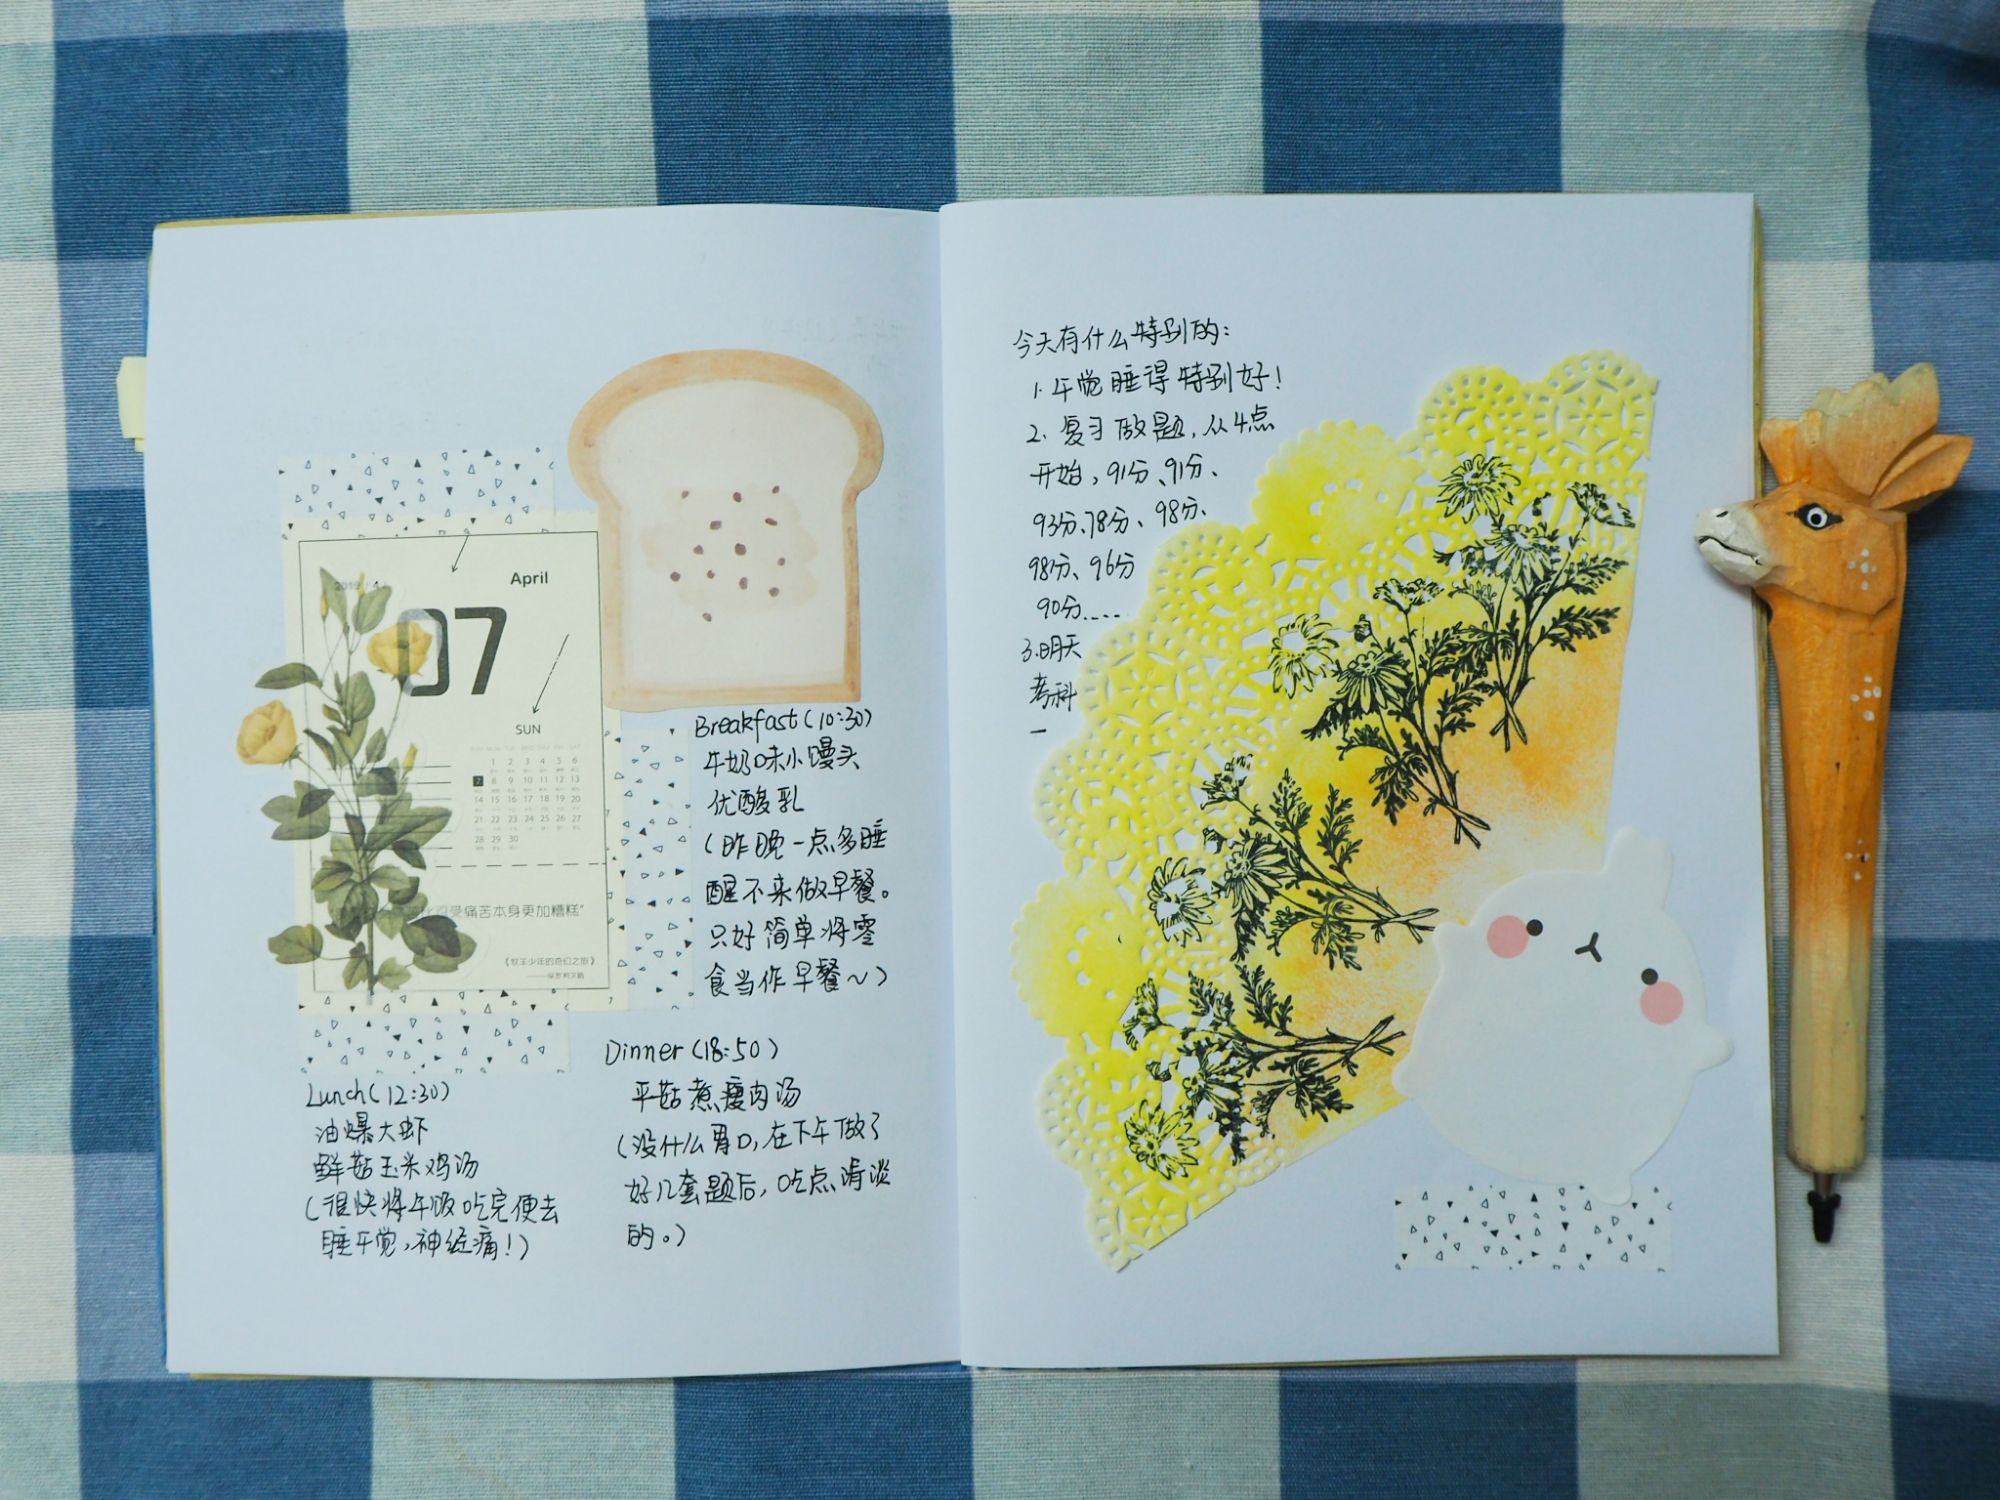 April
07
SUN
SUN MON TUE WED THU FRI SAT
1 2 3 4 5 6
7 8 9 10 11 12 13
14 15 16 17 18 19 20
21 22 23 24 25 26 27
28 29 30
受痛苦本身更加糟糕”
《牧羊少年的奇幻之旅》
Breakfast(10:30)
牛奶味小馒头
优酸乳
(昨晚一点多睡
醒不来做早餐。
只好简单将零
食当作早餐～)
Lunch(12:30)
油爆大虾
鲜菇玉米鸡汤
(很快将午饭吃完便去
睡午觉,神经痛!)
Dinner(18:50)
平菇煮瘦肉汤
(没什么胃口,在下午做了
好几套题后,吃点清淡
的。)
今天有什么特别的:
1.午觉睡得特别好!
2.复习做题,从4点
开始,91分、91分、
93分、78分、98分、
98分、96分
90分.....
3.明天
考科
一